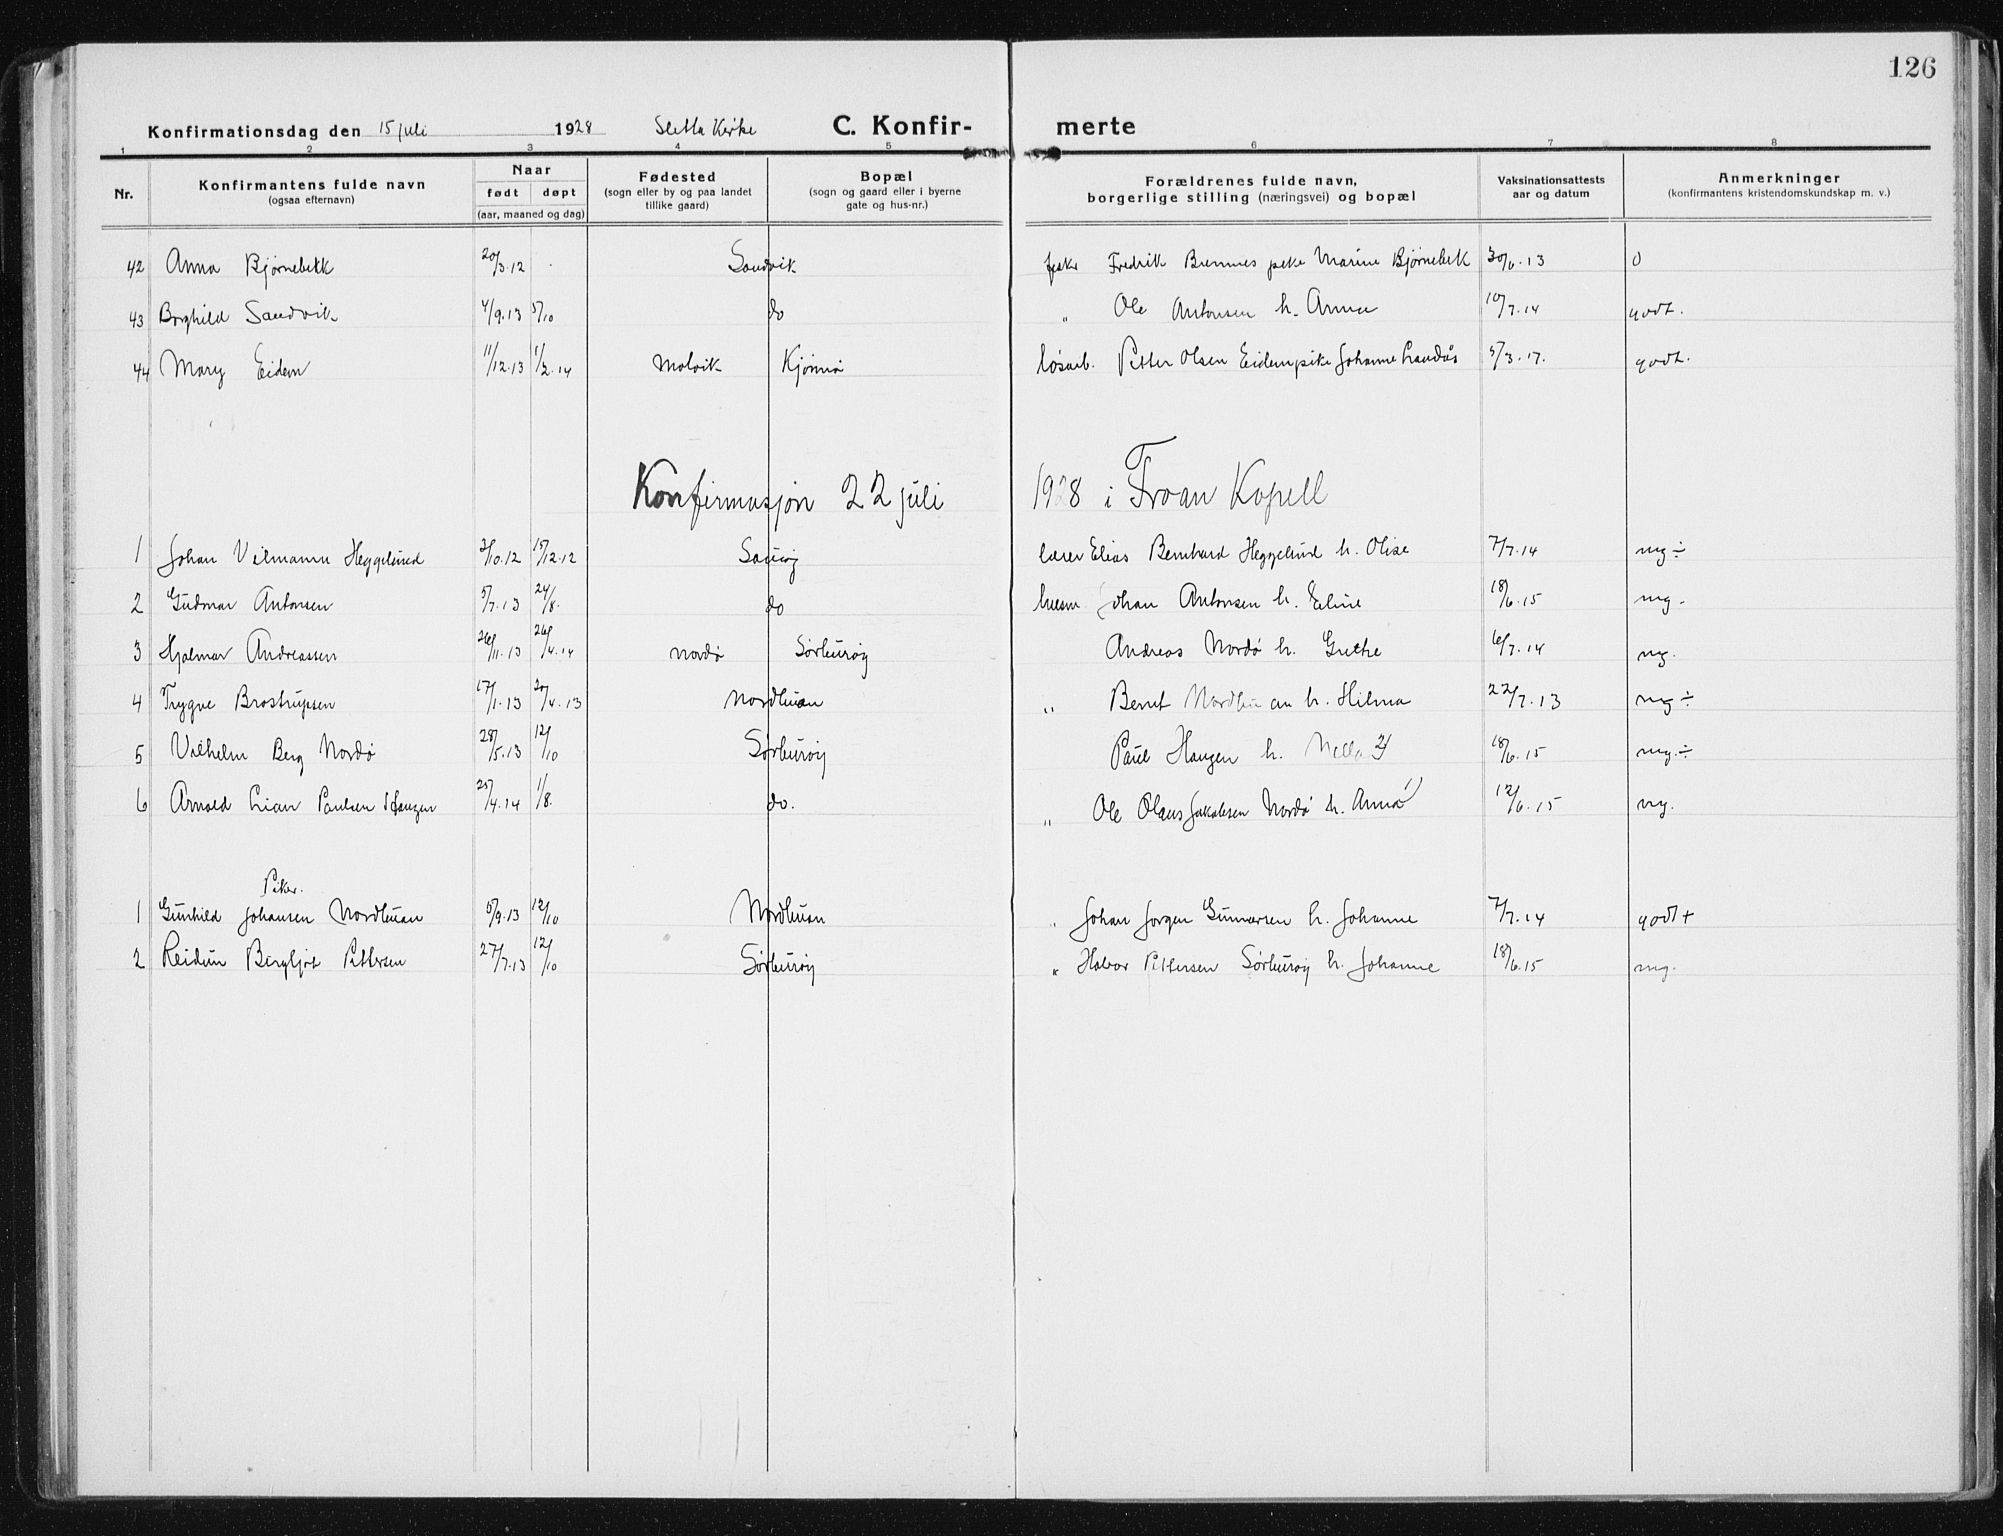 126
Konfirmationsdag den 15 juli 1928 Sletta Kirke C. Konfir- merte
1 2 3 4 5 6 7 8
Nr. Konfirmantens fulde navn (ogsaa efternavn) Naar født døpt (aar, maaned og dag) Fødested (sogn eller by og paa landet tillike gaard) Bopæl (sogn og gaard eller i byerne gate og hus-nr.) Forældrenes fulde navn, borgerlige stilling (næringsvei) og bopæl Vaksinationsattests aar og datum Anmerkninger (konfirmantens kristendomskundskap m. v.)
42 Anna Bjørnebekk 20/3.12 Sandvik fisker Fredrik Bremnes pike Marine Bjørnebekk 30/6.13 0
43 Borghild Sandvik 4/9.13 5/10 do " Ole Antonsen h. Anna 10/7.14 godt.
44 Mary Eidem 11/12.13 1/2.14 Malvik Kjønnø løsarb. Petter Olsen Eidem pike Johanne 5/3.17. godt.
Konfirmasjon 22 juli 1928 i Froan Kapell
1 Johan Vilmann Heggelund 3/10.12 15/12.12 Sauøy lærer Elias Bernhard Heggelund h. Olise 7/7.14 mg÷
2 Gudmar Antonsen 5/7.13 24/8. do husm. Johan Antonsen h. Eline 18/6.15 mg.
3 Hjalmar Andreassen 26/11.13 26/4.14 Nordø Sørburøy Andreas Nordø h. Grethe 6/7.14 mg.
4 Trygve Brostrupsen 17/1.13 20/4.13 Nordbuan " Bernt Nordbuan h. Hilma 22/7.13 mg÷
5 Vilhelm Berg Nordø 28/5.13 12/10 Sørburøy Paul Haugen h. 18/6.15 mg.÷
6 Arnold Lian Paulsen Haugen 25/4.14 1/8. do. " Ole Olaus Jakobsen Nordø h. Anna 12/6.15 mg.
Piker.
1 Gunhild Johansen Nordbuan 5/9.13 12/10 Nordbuan " Johan Jørgen Gunnarsen h. Johanne 7/7.14 godt+
2 Reidun Bergljot Pettersen 27/7.13 12/10 Sørburøy " Halvor Pettersen Sørburøy h. Johanne 18/6.15 mg.